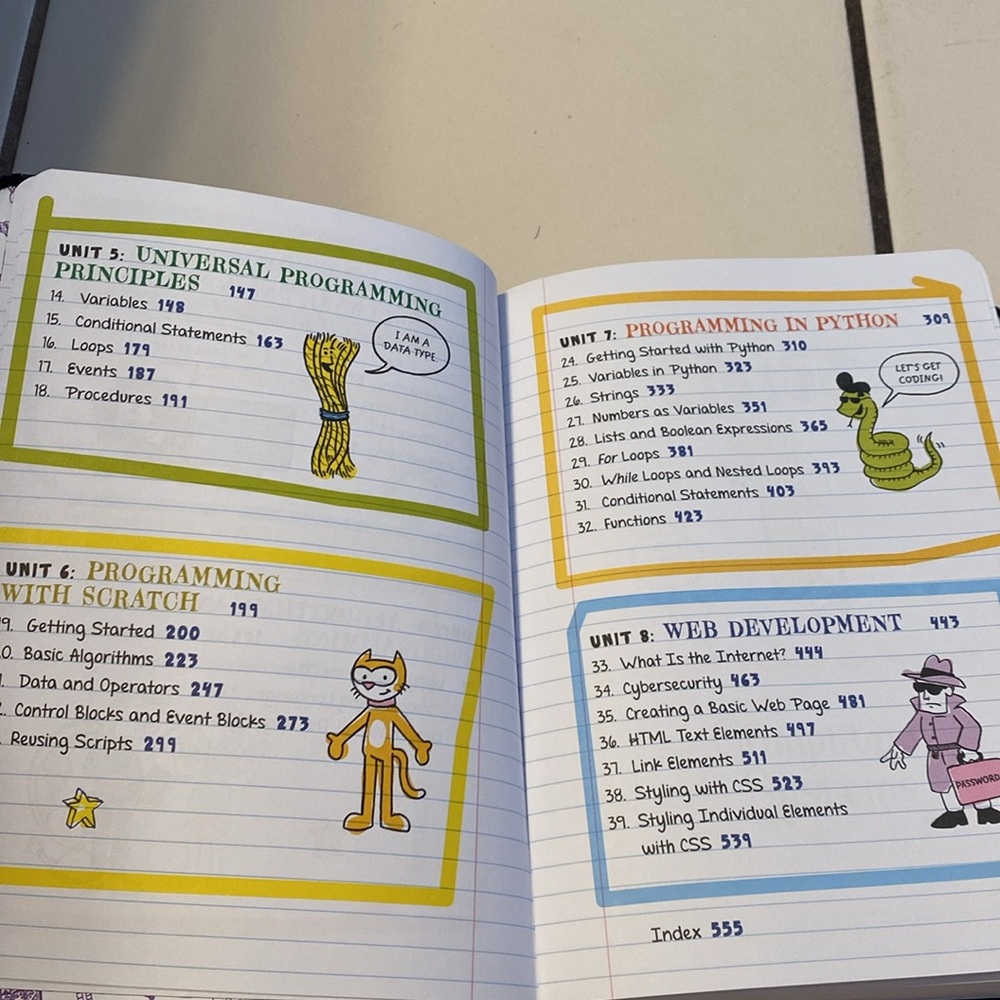 UNIT 5: UNIVERSAL PROGRAMMING
PRINCIPLES 147
14. Variables 148
15. Conditional Statements 163
16. Loops 179
17. Events 187
18. Procedures 191
I AM A
DATA TYPE.
UNIT 6: PROGRAMMING
WITH SCRATCH 199
9. Getting Started 200
0. Basic Algorithms 223
. Data and Operators 247
. Control Blocks and Event Blocks 273
. Reusing Scripts 299
UNIT 7: PROGRAMMING IN PYTHON 309
24. Getting Started with Python 310
25. Variables in Python 323
26. Strings 333
27. Numbers as Variables 351
28. Lists and Boolean Expressions 365
29. For Loops 381
30. While Loops and Nested Loops 393
31. Conditional Statements 403
32. Functions 423
LET'S GET
CODING!
UNIT 8: WEB DEVELOPMENT 443
33. What Is the Internet? 444
34. Cybersecurity 463
35. Creating a Basic Web Page 481
36. HTML Text Elements 497
37. Link Elements 511
38. Styling with CSS 523
39. Styling Individual Elements
with CSS 539
PASSWORD
Index 555